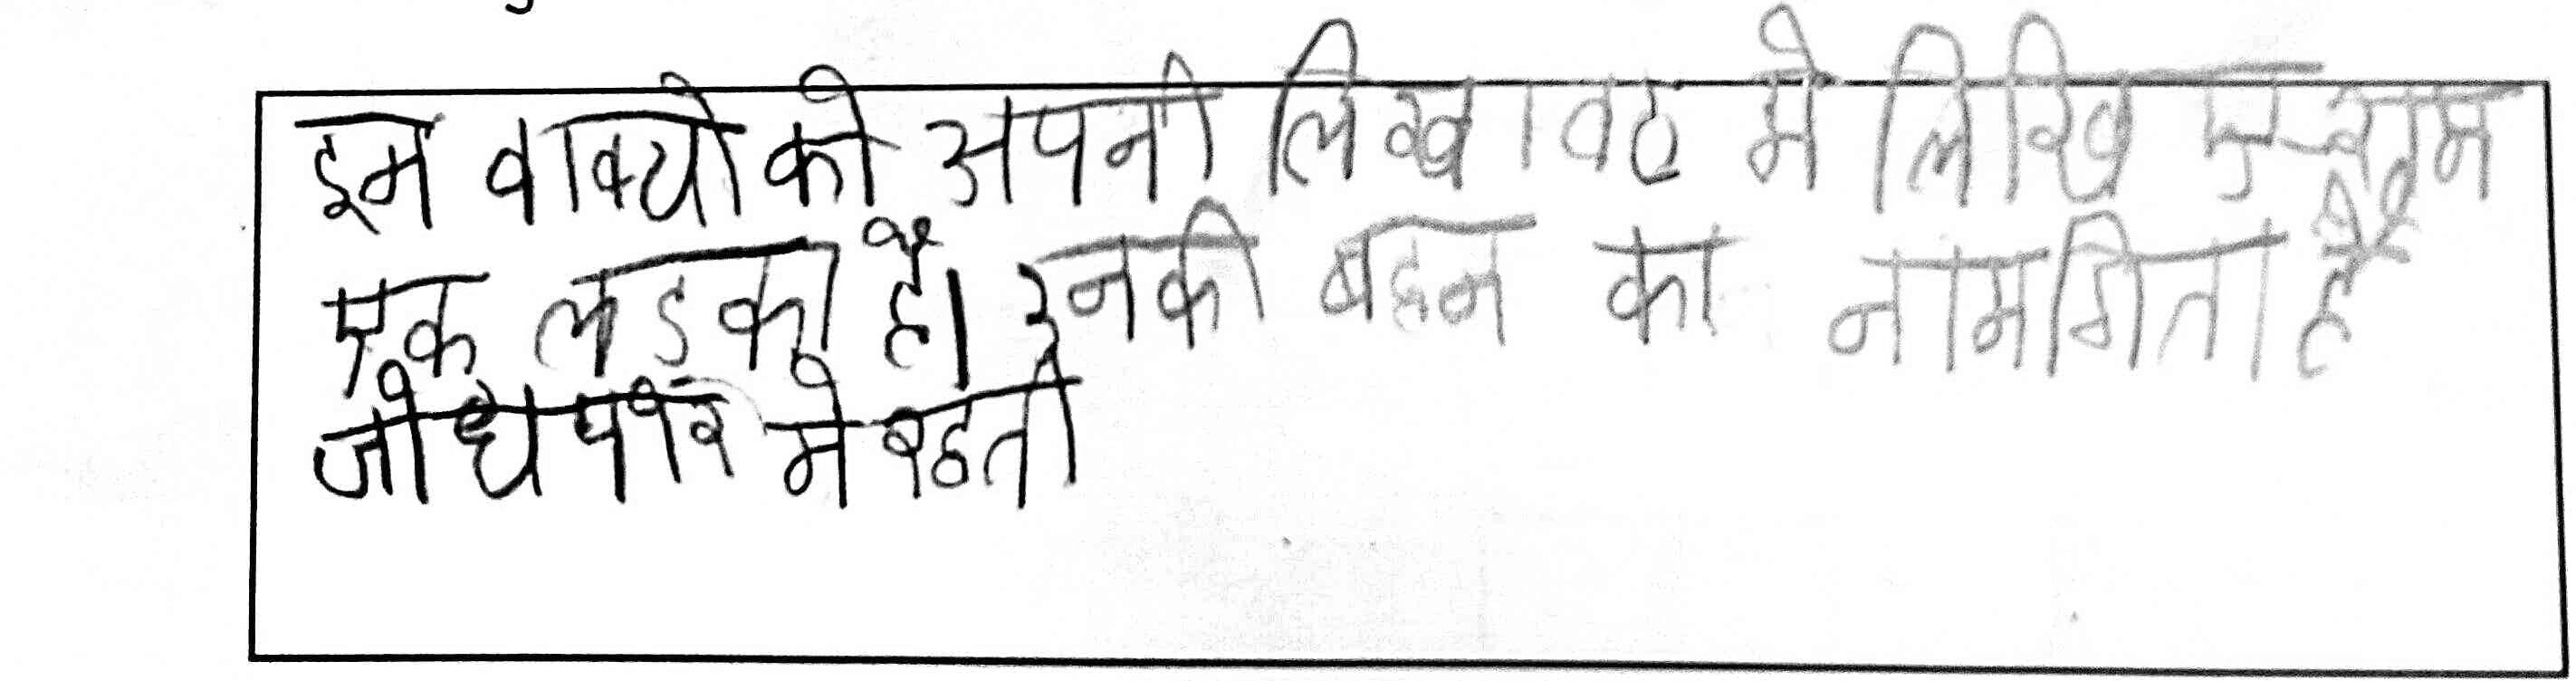 इम वाक्यो को अपनी लिखावट मे लिखि
एक लड़का है। उनकी बहन का नाम गिता है
जोधेपार मे रहती